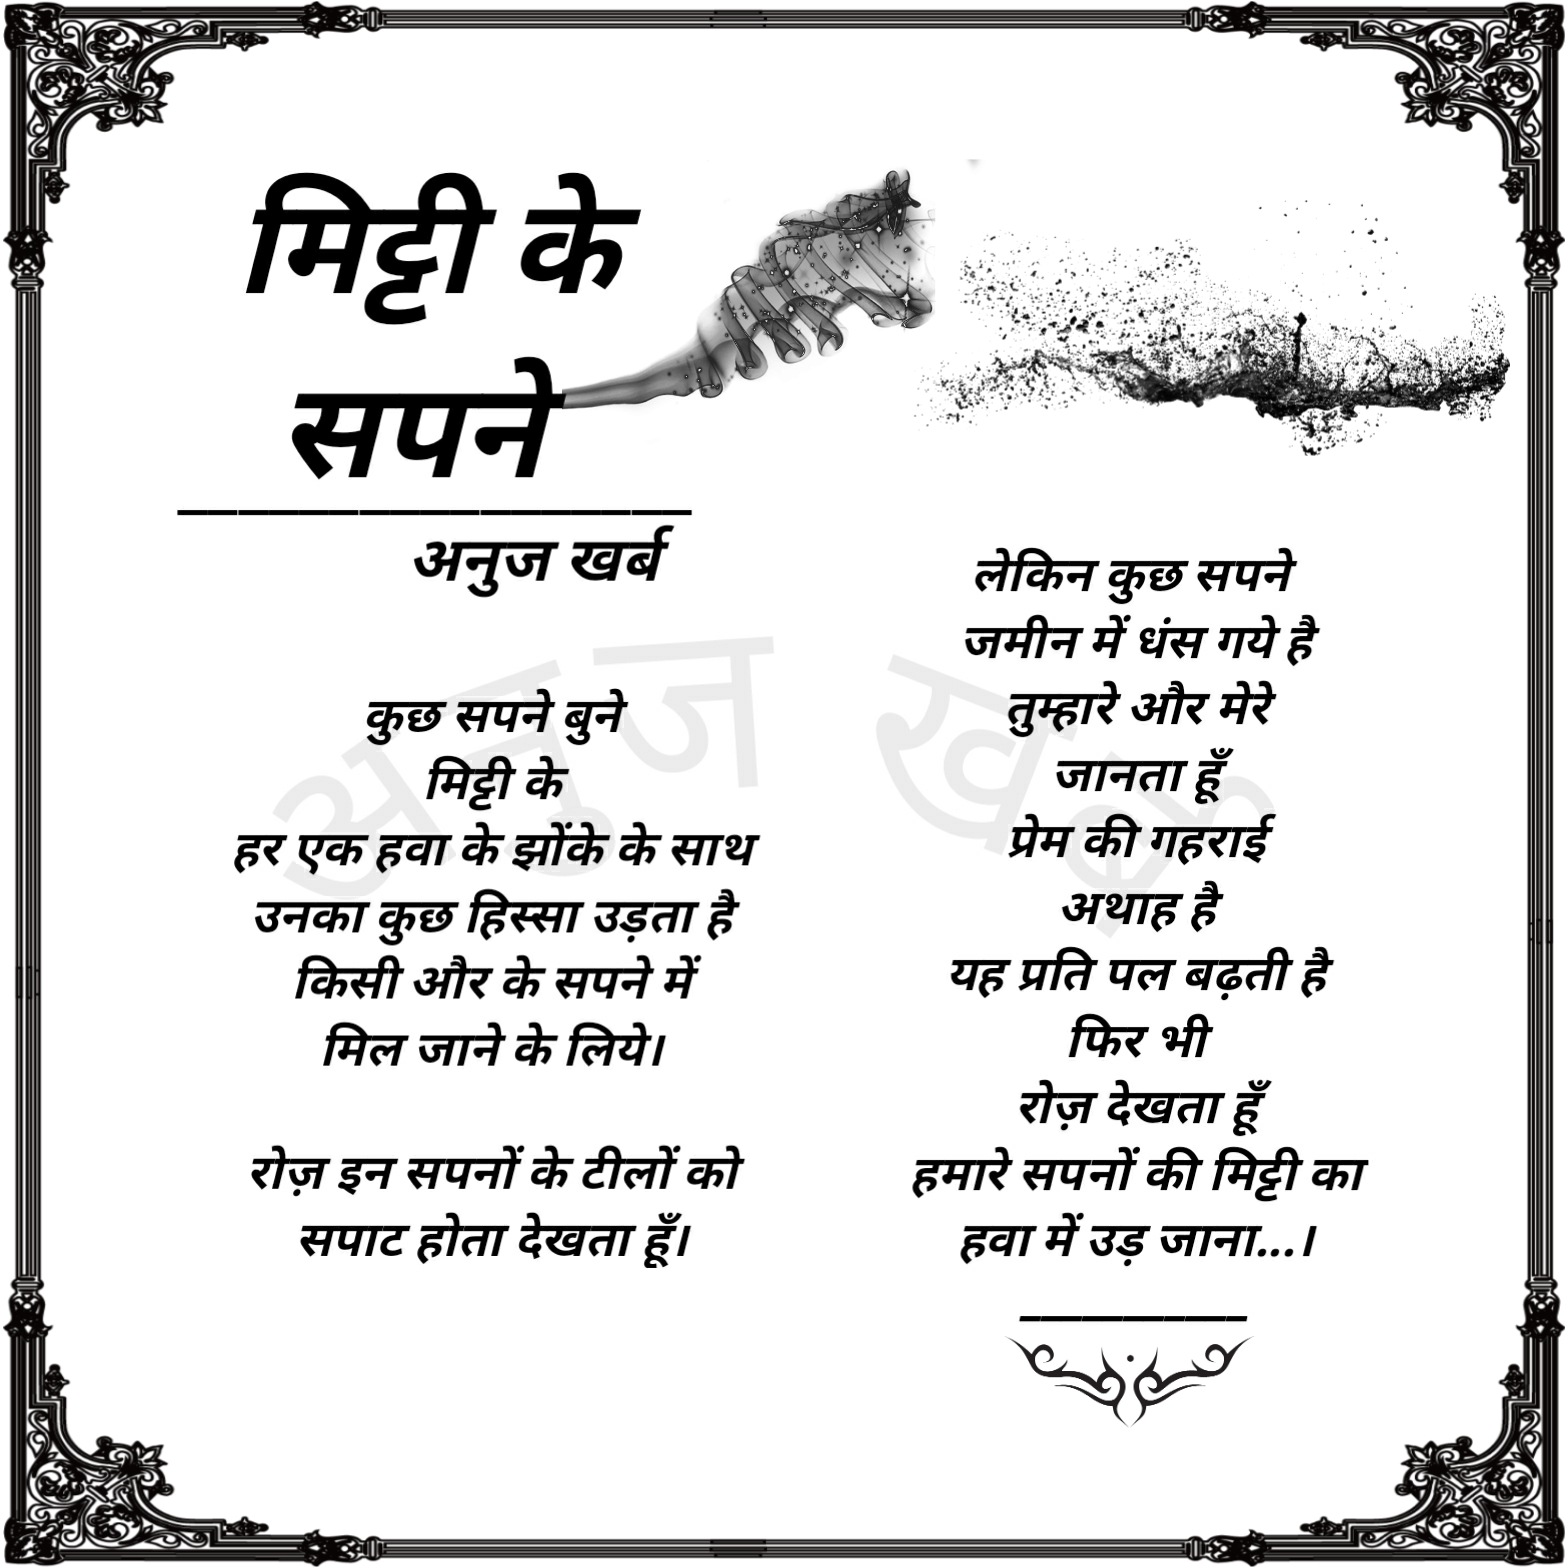 मिट्टी के
सपने
अनुज खर्ब
कुछ सपने बुने
मिट्टी के
हर एक हवा के झोंके के साथ
उनका कुछ हिस्सा उड़ता है
किसी और के सपने में
मिल जाने के लिये।
रोज़ इन सपनों के टीलों को
सपाट होता देखता हूँ।
लेकिन कुछ सपने
जमीन में धंस गये है
तुम्हारे और मेरे
जानता हूँ
प्रेम की गहराई
अथाह है
यह प्रति पल बढ़ती है
फिर भी
रोज़ देखता हूँ
हमारे सपनों की मिट्टी का
हवा में उड़ जाना...।
अनुज खर्ब